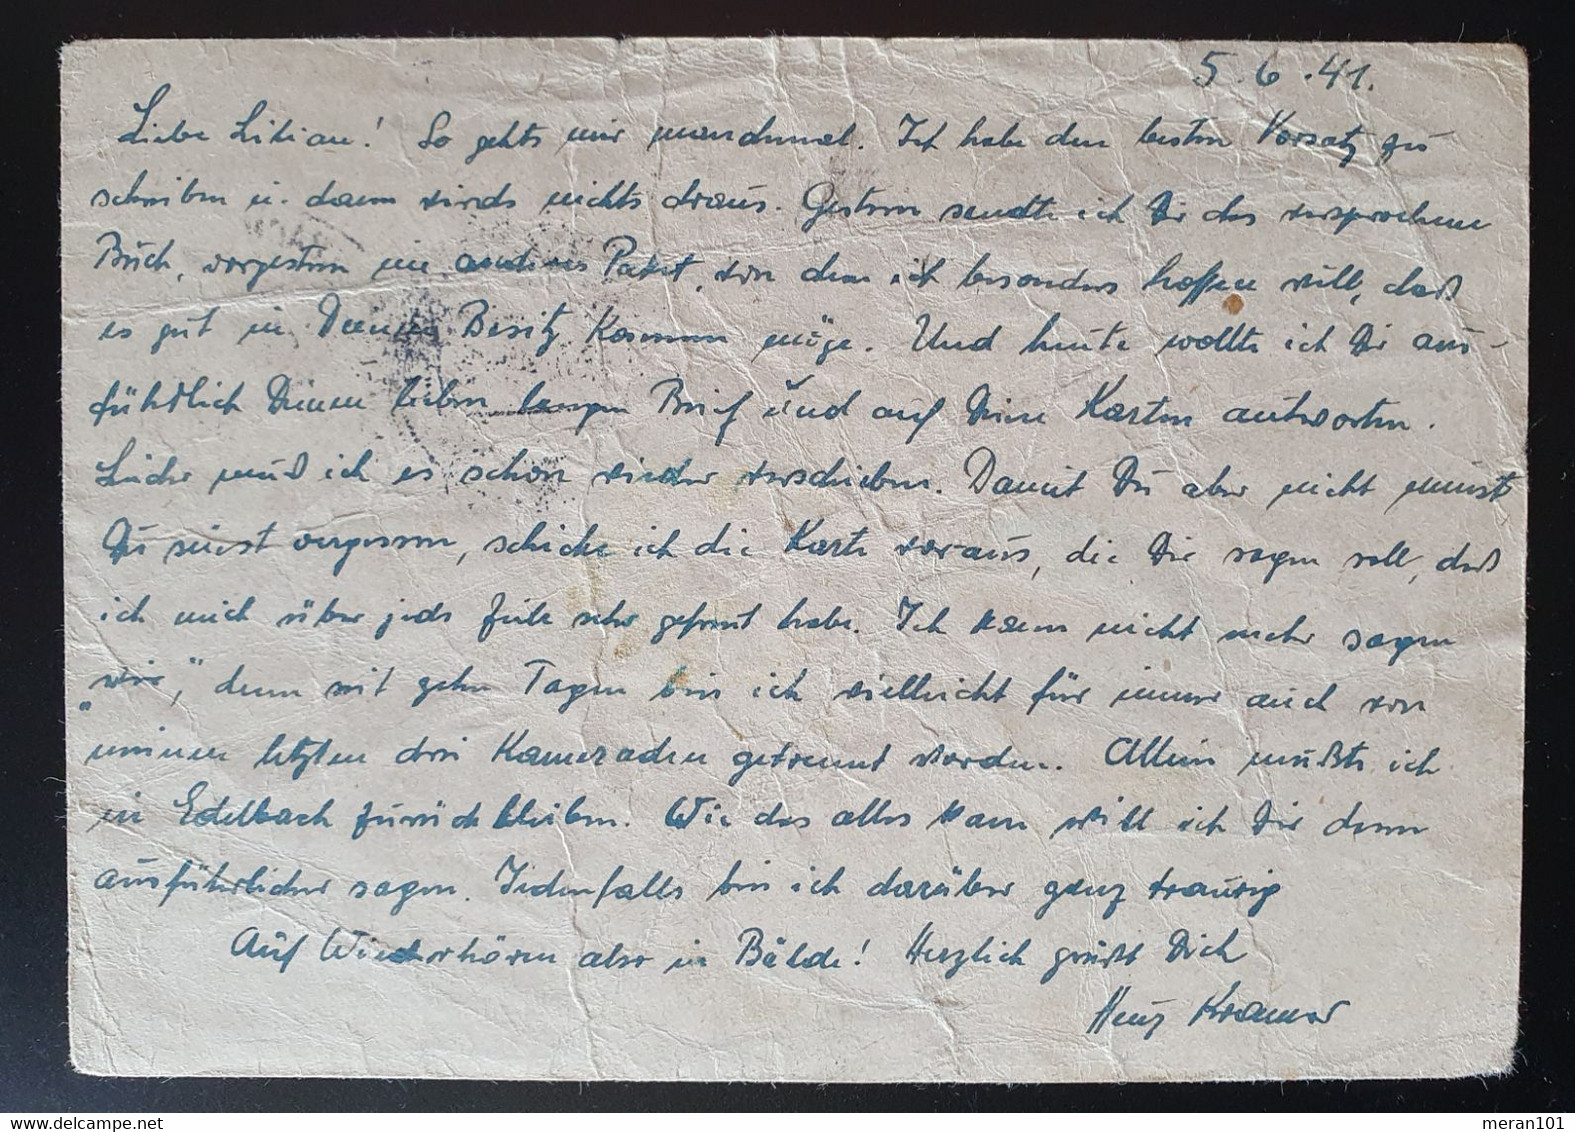 5.6.41.
Liebe Lilian! So gehts mir manchmal. Ich habe den besten Vorsatz zu
schreiben u. dann wirds nichts draus. Gestern sandte ich Dir das versprochene
Buch, vorgestern ein anderes Paket, von dem ich besonders hoffen will, daß
es gut in Deinen Besitz kommen möge. Und heute wollte ich Dir aus-
führlich Deinen lieben langen Brief und auf Deine Karten antworten.
Leider muß ich es schon wieder verschieben. Damit Du aber nicht meinst
Du seiest vergessen, schicke ich die Karte voraus, die Dir sagen soll, daß
ich mich über jede Zeile sehr gefreut habe. Ich kann nicht mehr sagen
"wir", denn seit zehn Tagen bin ich vielleicht für immer auch von
meinen letzten drei Kameraden getrennt worden. Allein mußte ich
in Edelbach zurückbleiben. Wie das alles kam will ich Dir dann
ausführlicher sagen. Jedenfalls bin ich darüber ganz traurig
Auf Wiederhören also in Bälde! Herzlich grüßt Dich
Heinz Kramer
meran101